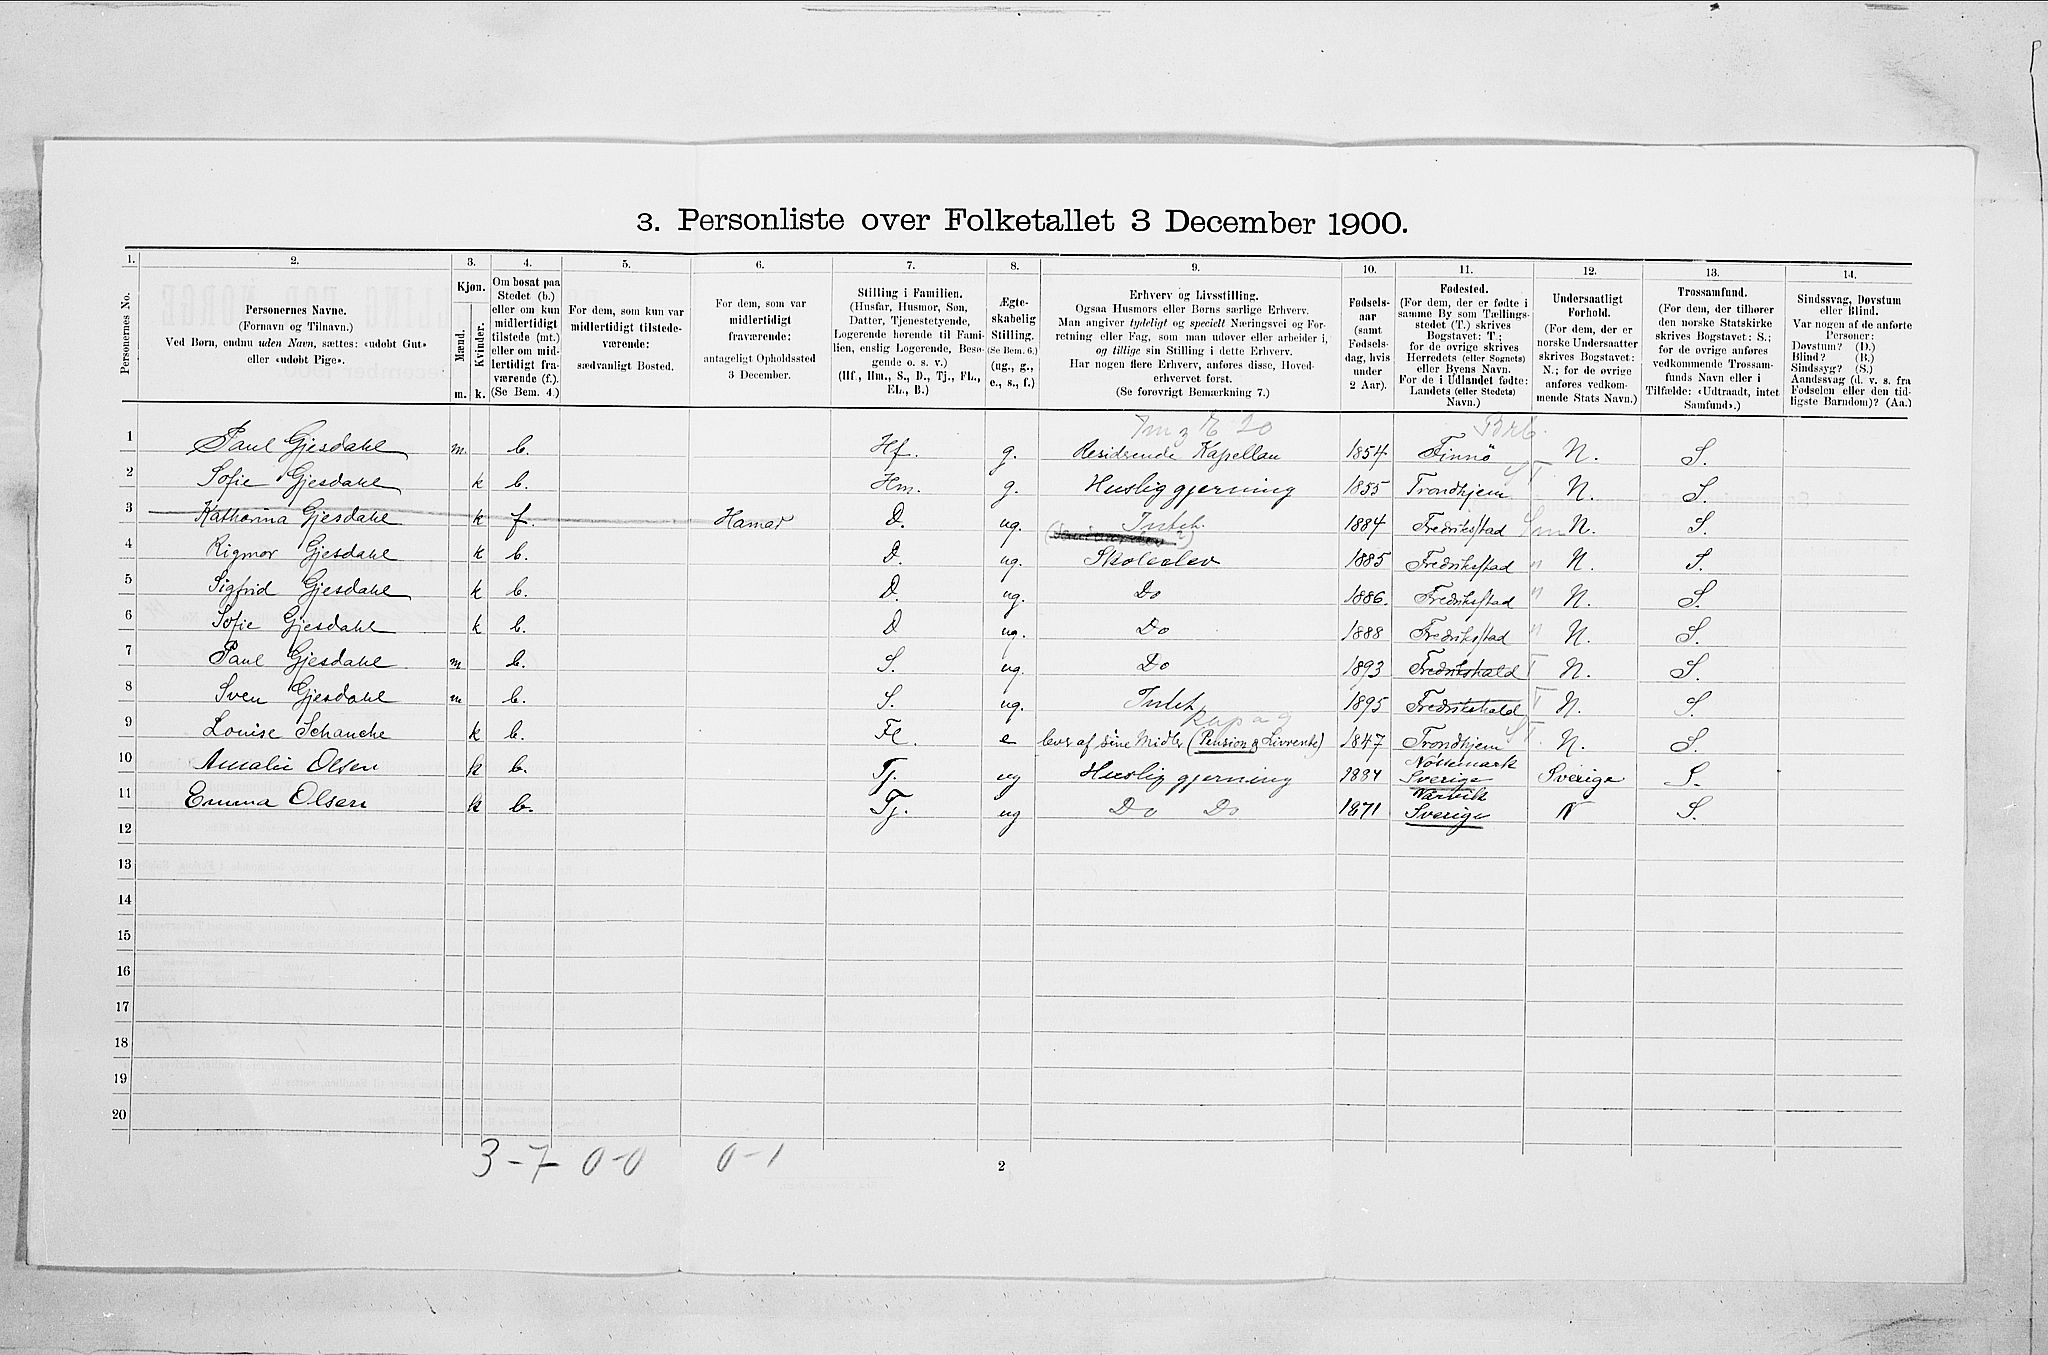 3. Personliste over Folketallet 3 December 1900.
1. 2. 3. 4. 5. 6. 7. 8. 9. 10. 11. 12. 13. 14.
Personernes No.
Personernes Navne.
(Fornavn og Tilnavn.)
Ved Børn, endnu uden Navn, sættes: «udøbt Gut»
eller «udøbt Pige».
Kjøn.
Mænd. Kvinder.
m. k.
Om bosat paa
Stedet (b.)
eller om kun
midlertidigt
tilstede (mt.)
eller om mid-
lertidigt fra-
værende (f.).
(Se Bem. 4.)
For dem, som kun var
midlertidigt tilstede-
værende:
sædvanligt Bosted.
For dem, som var
midlertidigt
fraværende:
antageligt Opholdssted
3 December.
Stilling i Familien.
(Husfar, Husmor, Søn,
Datter, Tjenestetyende,
Logerende hørende til Fami-
lien, enslig Logerende, Besø-
gende o. s. v.)
(Hf., Hm., S., D., Tj., FL.,
EL., B.)
Ægte-
skabelig
Stilling.
(Se Bem. 6.)
(ug., g.,
e., s., f.)
Erhverv og Livsstilling.
Ogsaa Husmors eller Børns særlige Erhverv.
Man angiver tydeligt og specielt Næringsvei og For-
retning eller Fag, som man udøver eller arbeider i,
og tillige sin Stilling i dette Erhverv.
Har nogen flere Erhverv, anføres disse, Hoved-
erhvervet først.
(Se forøvrigt Bemærkning 7.)
Fødsels-
aar
(samt
Fødsels-
dag, hvis
under
2 Aar).
Fødested.
(For dem, der er fødte i
samme By som Tællings-
stedet (T.) skrives
Bogstavet: T.;
for de øvrige skrives
Herredets (eller Sognets)
eller Byens Navn.
For de i Udlandet fødte:
Landets (eller Stedets)
Navn.)
Undersaatligt
Forhold.
(For dem, der er
norske Undersaatter
skrives Bogstavet:
N.; for de øvrige
anføres vedkom-
mende Stats Navn.)
Trossamfund.
(For dem, der tilhører
den norske Statskirke
skrives Bogstavet: S.;
for de øvrige anføres
vedkommende Trossam-
funds Navn eller i
Tilfælde: «Udtraadt, intet
Samfund».)
Sindssvag, Døvstum
eller Blind.
Var nogen af de anførte
Personer:
Døvstum? (D.)
Blind? (B.)
Sindssyg? (S.)
Aandssvag (d. v. s. fra
Fødselen eller den tid-
ligste Barndom)? (Aa.)
1 Paul Gjesdahl m. b. Hf. g. Residrende Kapellan 1854 Finnö N. S.
2 Sofie Gjesdahl k b. Hm. g. Huslig gjerning 1855 Trondhjem N. S.
3 Katharina Gjesdahl k f. Hamar D. ug. Intet. 1884 Fredrikstad N. S.
4 Rigmor Gjesdahl k b. D. ug. Skoleelev 1885 Fredrikstad N. S.
5 Sigfrid Gjesdahl k b. D. ug. Do 1886. Fredrikstad N. S.
6 Sofie Gjesdahl k b. D ug. Do 1888 Fredrikstad N. S.
7 Paul Gjesdahl m b. S. ug. Do 1893 Fredrikshald T N. S.
8 Sven Gjesdahl m b. S. ug. Intet 1895 Fredrikshald T N. S.
9 Louise Schanche k b. Fl. e lever af sine Midler (Pension & Livrente) 1847 Trondhjem N. S.
10 Amalie Olsen k b. Tj. ug Huslig gjerning 1884 Nöttemark Sverige Sverige S.
11 Emma Olsen k b. Tj. ug Do Do 1871 Sverige N S.
12
13
14
15
16
17
18
19
20
3-7 0-0 0-1
2